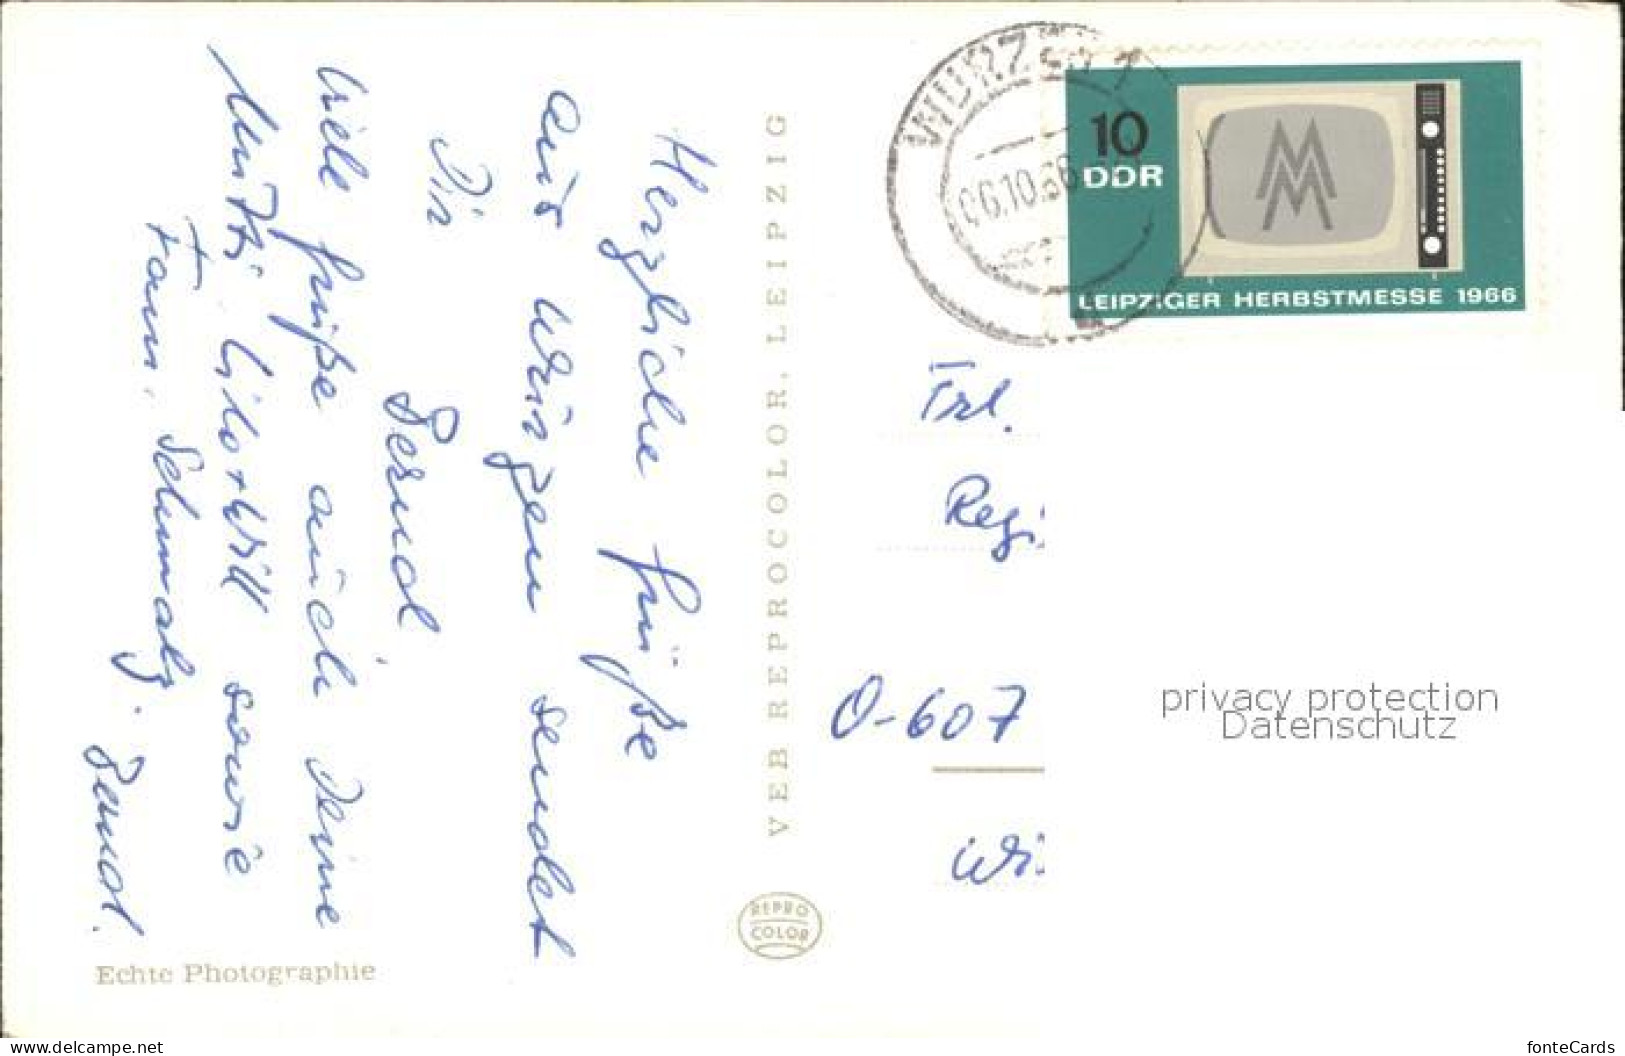 Herzliche Grüße
aus Wurzen sendet
Dir
Bernd
Viele Grüße auch Deine
Mutti
sowie
Fam. Schmalz. Bernd.
Echte Photographie
VEB REPROCOLOR, LEIPZIG
REPRO
COLOR
WURZEN 1
06.10.66
10
DDR
MM
LEIPZIGER HERBSTMESSE 1966
Frl.
Regi
O-607
Wi
privacy protection
Datenschutz
www.delcampe.net
fonteCards